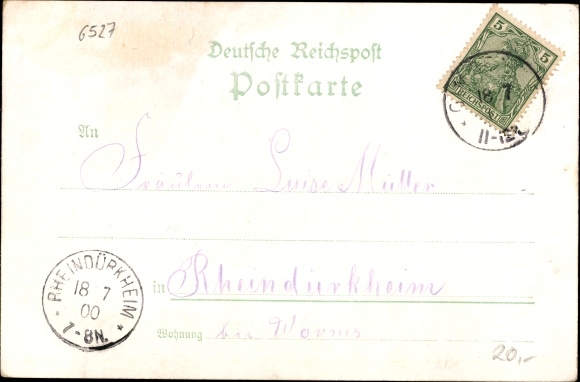 6527
Deutsche Reichspost
Postkarte
5 5
REICHSPOST
18 7
11-12
An
Fräulein Luise Müller
in Rheindürkheim
Wohnung bei Worms
RHEINDÜRKHEIM
18 7
00
7-8N.
20,-